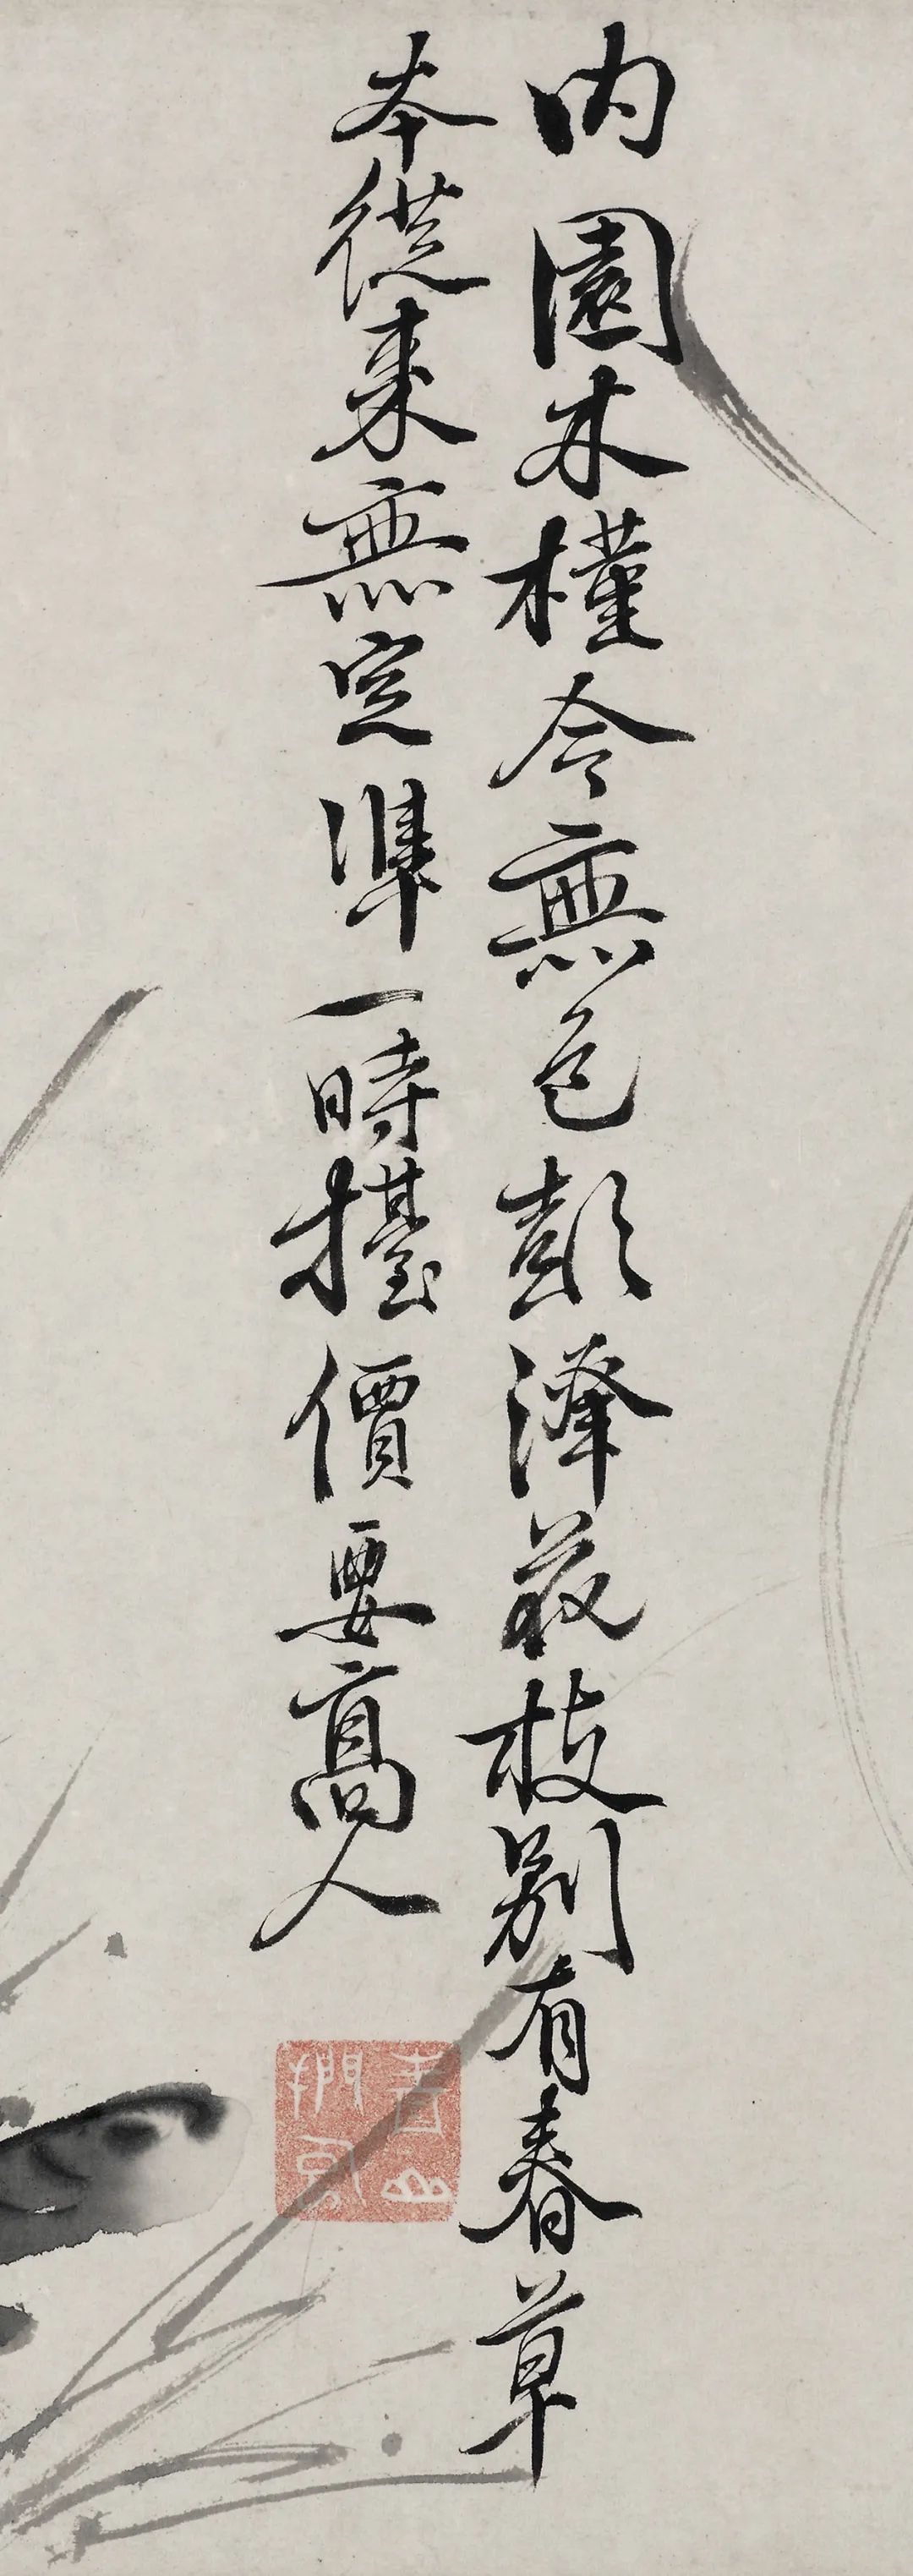 内園木槿今無色彭澤菊枝別有春草
本從來無定準一時擡價要高人
青山
捫虱